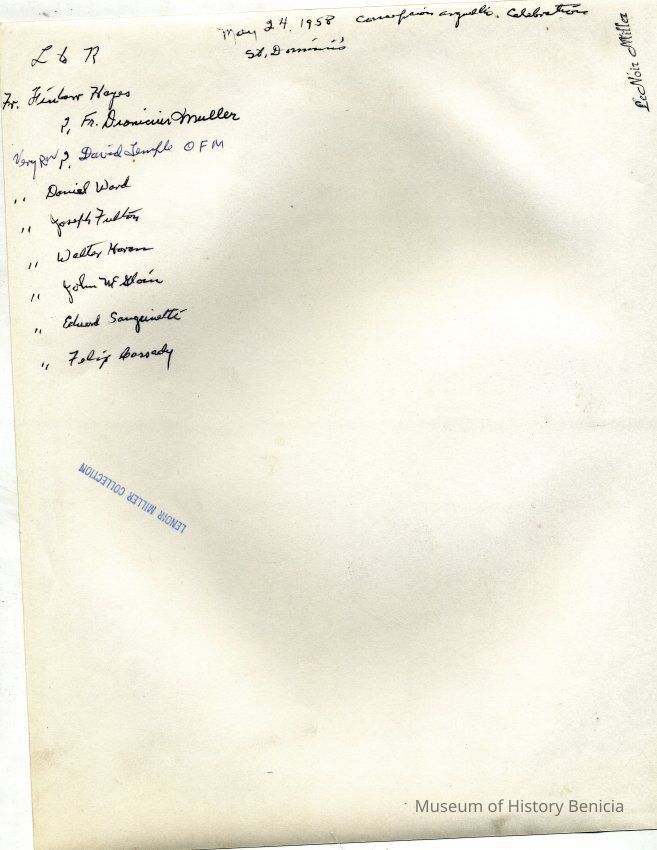 May 24, 1958 Concepcion Arguello Celebrations
St, Dominic's
LeNoir Miller
L to R
Fr. Finbarr Hayes
?, Fr. Dionicius Mueller
Very Rev ?, David Temple OFM
,, Daniel Ward
,, Joseph Fulton
,, Walter
,, John
,, Edward Sanguinetti
,, Felix Cassidy
LENOIR MILLER COLLECTION
Museum of History Benicia